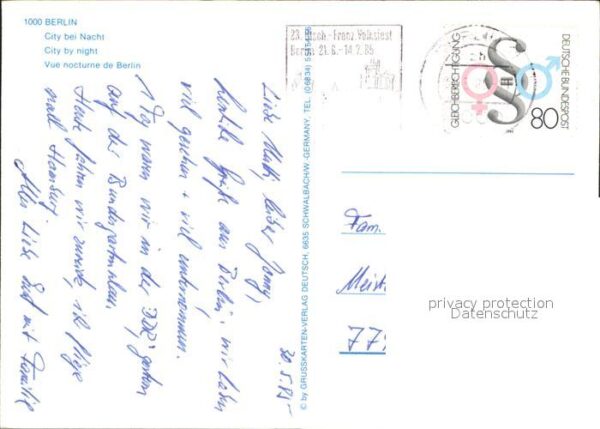 1000 BERLIN
City bei Nacht
City by night
Vue nocturne de Berlin
23. Dtsch.-Franz. Volksfest
Berlin 21.6.-14.7.85
GLEICHBERECHTIGUNG
DEUTSCHE BUNDESPOST
80
© by GRUSSKARTEN-VERLAG DEUTSCH, 6635 SCHWALBACH/W.-GERMANY, TEL. (06834)
30.5.85
Liebe Mutti, lieber
herzliche Grüße aus Berlin, wir haben
viel gesehen + viel unternommen.
1 Tag waren wir in der DDR, gestern
auf der Bundesgartenschau.
Heute fahren wir zurück,
nach Hamburg.
Alles Liebe mit Familie
Fam.
77
privacy protection
Datenschutz